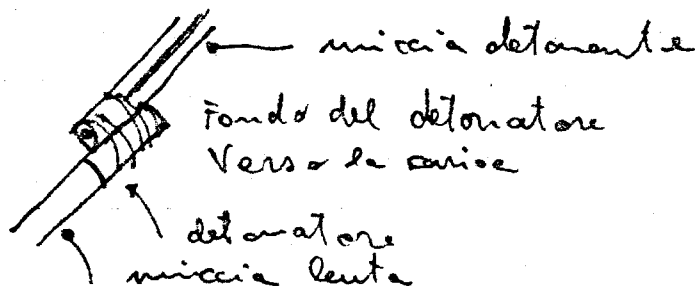 miccia detonante
Fondo del detonatore
Verso la carica
detonatore
miccia lenta